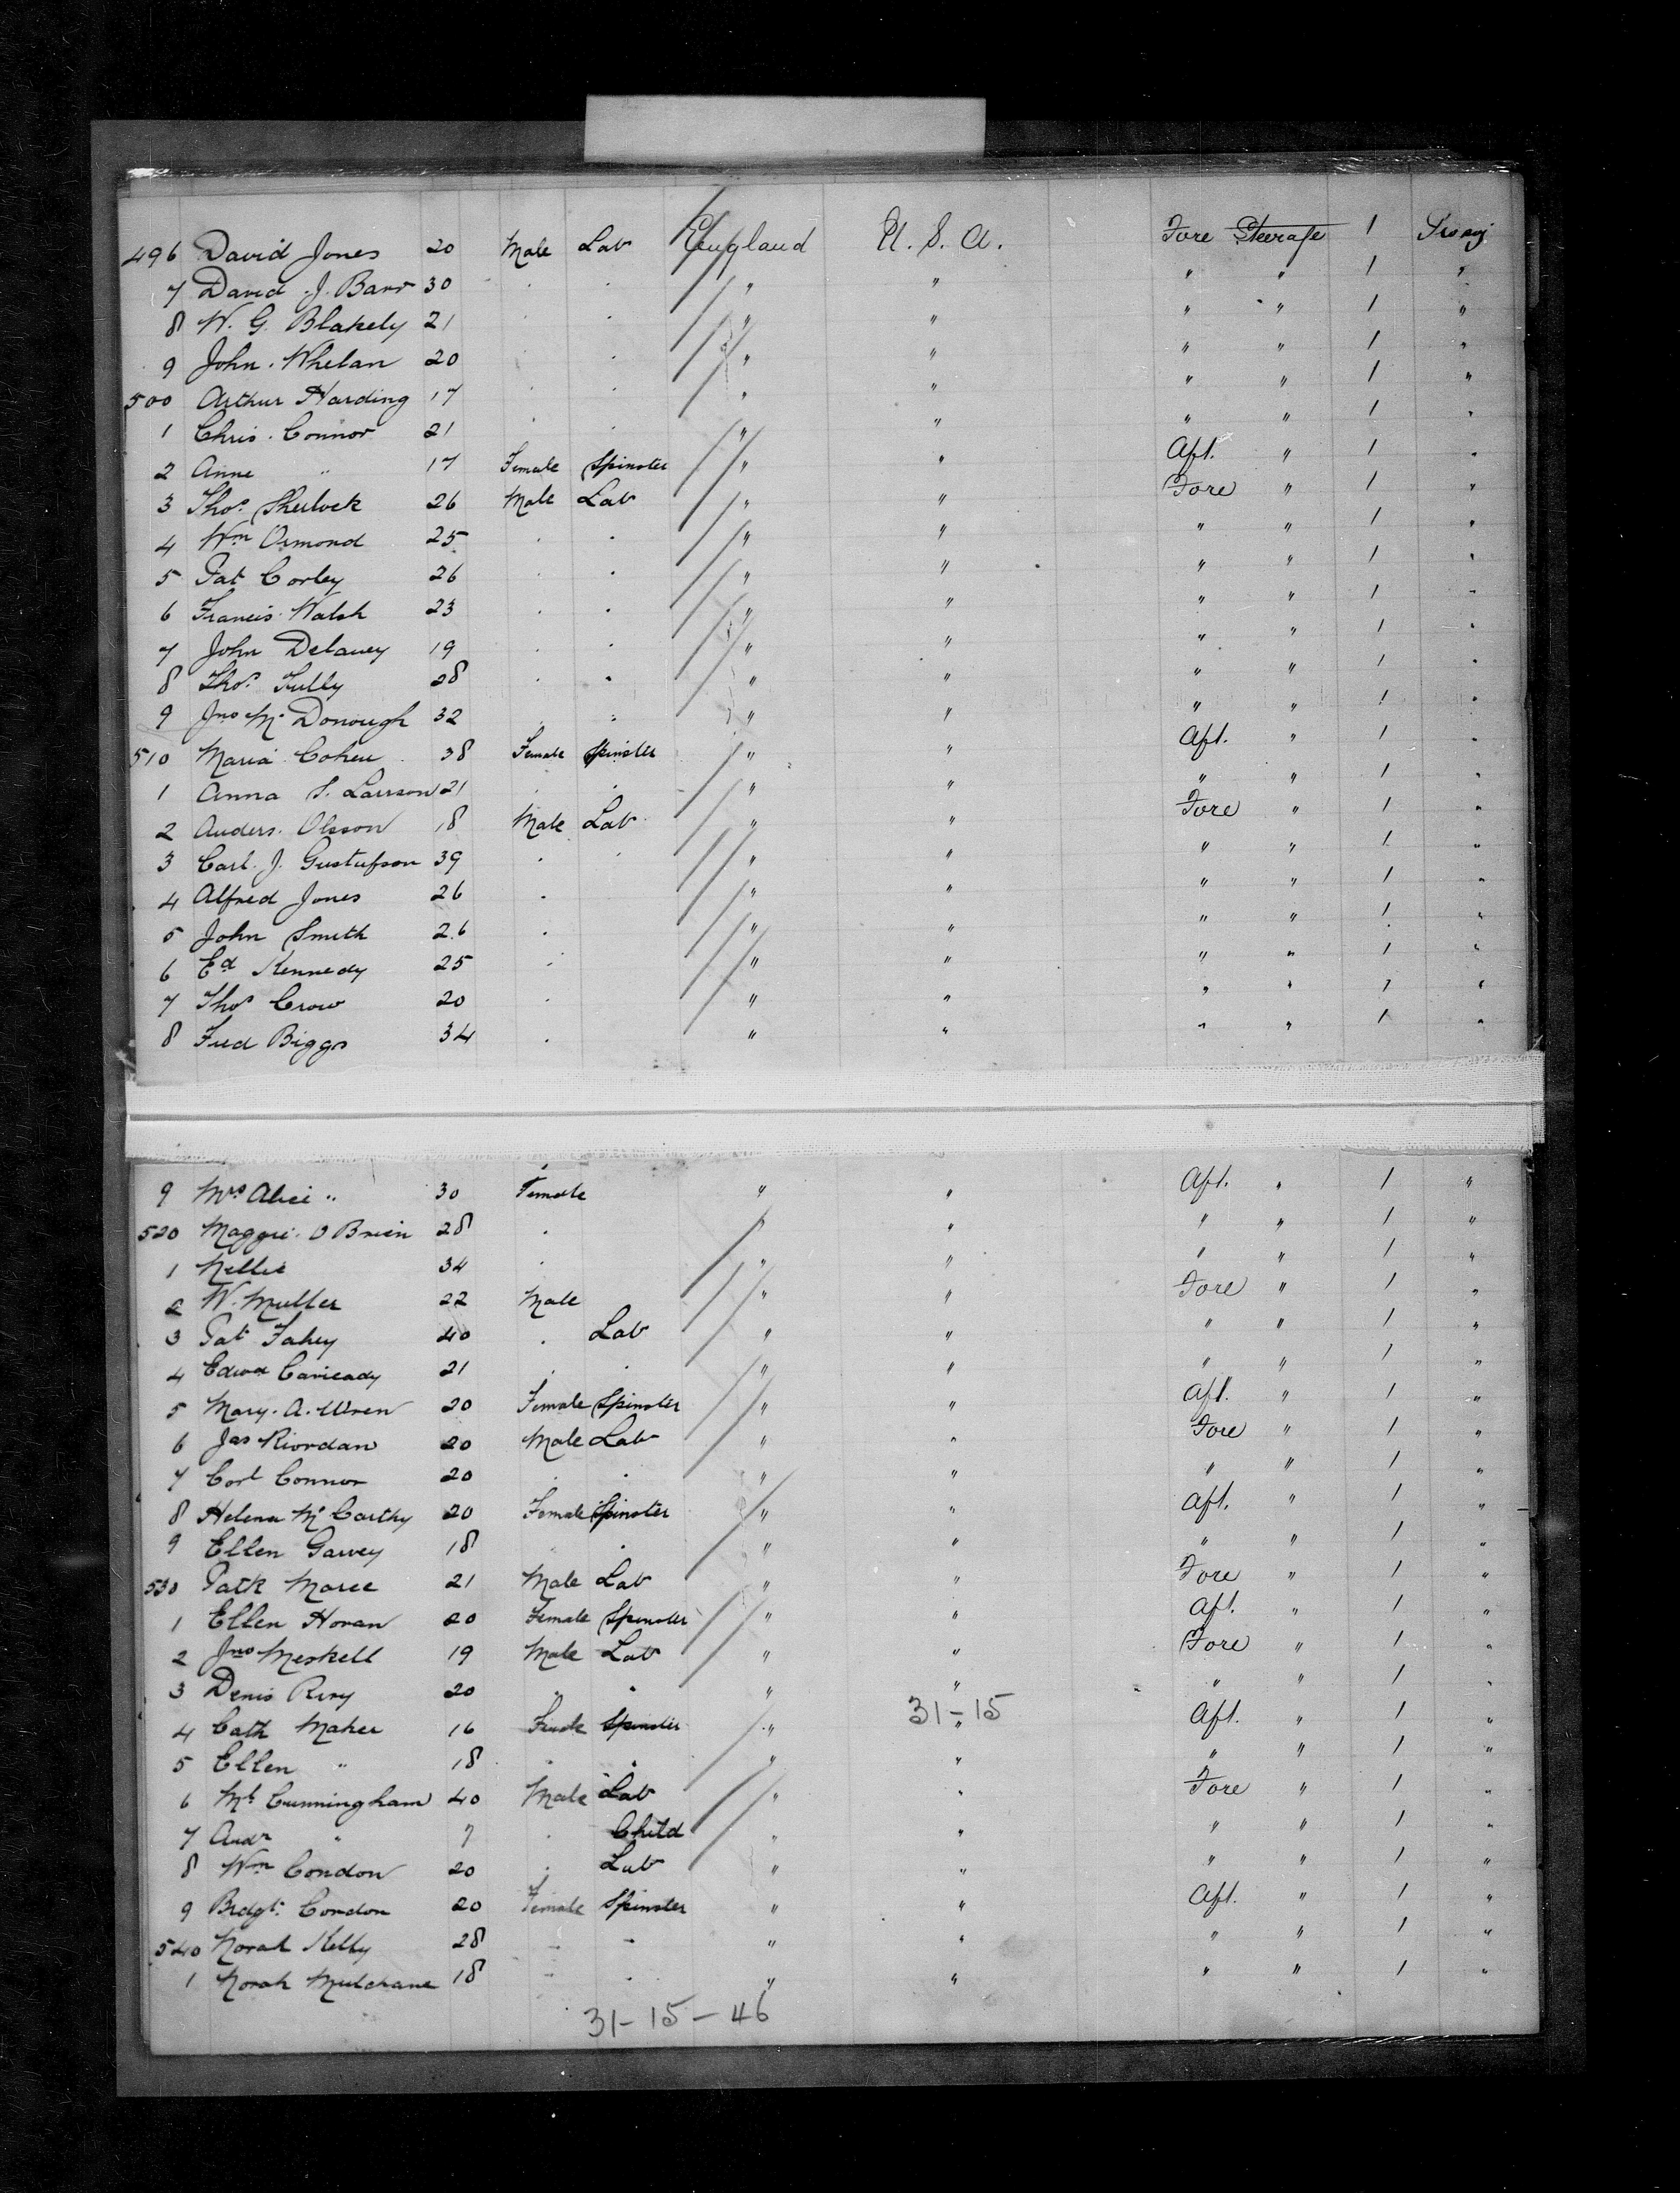 496 David Jones 20 Male Lab England U. S. A. Fore Steerage 1
7 David J. Barr 30 . . " " " " 1 "
8 W. G. Blakely 21 . . " " " " 1 "
9 John Whelan 20 . . " " " " 1 "
500 Arthur Harding 17 . . " " " " 1 "
1 Chris. Connor 21 . . " " " " 1 "
2 Anne " 17 Female Spinster " " Aft. " 1 "
3 Thos. Sherlock 26 Male Lab " " Fore " 1 "
4 Wm Ormond 25 . . " " " " 1 "
5 Pat Corley 26 . . " " " " 1 "
6 Francis Walsh 23 . . " " " " 1 "
7 John Delaney 19 . . " " " " 1 "
8 Thos. Tully 28 . . " " " " 1 "
9 Jno Mc Donough 32 . . " " " " 1 "
510 Maria Cohen 38 Female Spinster " " Aft. " 1 "
1 Anna S. Larrson 21 . . " " " " 1 "
2 Anders. Olsson 18 Male Lab " " Fore " 1 "
3 Carl. J. Gustufson 39 . . " " " " 1 "
4 Alfred Jones 26 . " " " " 1 "
5 John Smith 26 . " " " " 1 "
6 Ed Kennedy 25 . " " " " 1 "
7 Thos Crow 20 . " " " " 1 "
8 Fred Biggs 34 . " " " " 1 "
9 Mrs Alice " 30 Female " " Aft. " 1 "
520 Maggie O Brien 28 . " " " " 1 "
1 Nellie 34 . " " " " 1 "
2 W. Muller 22 Male " " Fore " 1 "
3 Pat Fahey 40 . Lab " " " " 1 "
4 Edwd 21 . . " " " " 1 "
5 Mary. A. Wren 20 Female Spinster " " Aft. " 1 "
6 Jas Riordan 20 Male Lab " " Fore " 1 "
7 Corl Connor 20 . . " " " " 1 "
8 Helena Mc Carthy 20 Female Spinster " " Aft. " 1 "
9 Ellen Garvey 18 . . " " " " 1 "
530 Patk 21 Male Lab " " Fore " 1 "
1 Ellen Horan 20 Female Spinster " " Aft. " 1 "
2 Jno Meskell 19 Male Lab " " Fore " 1 "
3 Denis 20 " " " " " " 1 "
31-15
4 Cath Maher 16 Female Spinster " " Aft. " 1 "
5 Ellen " 18 " " " " " " 1 "
6 Ml Cunningham 40 Male Lab " " Fore " 1 "
7 Andr " 7 . Child " " " " 1 "
8 Wm Condon 20 . Lab " " " " 1 "
9 Bridgt. Condon 20 Female Spinster " " Aft. " 1 "
540 Norah Kelly 28 " " " " " " 1 "
1 Norah 18 " . " " " " 1 "
31-15-46